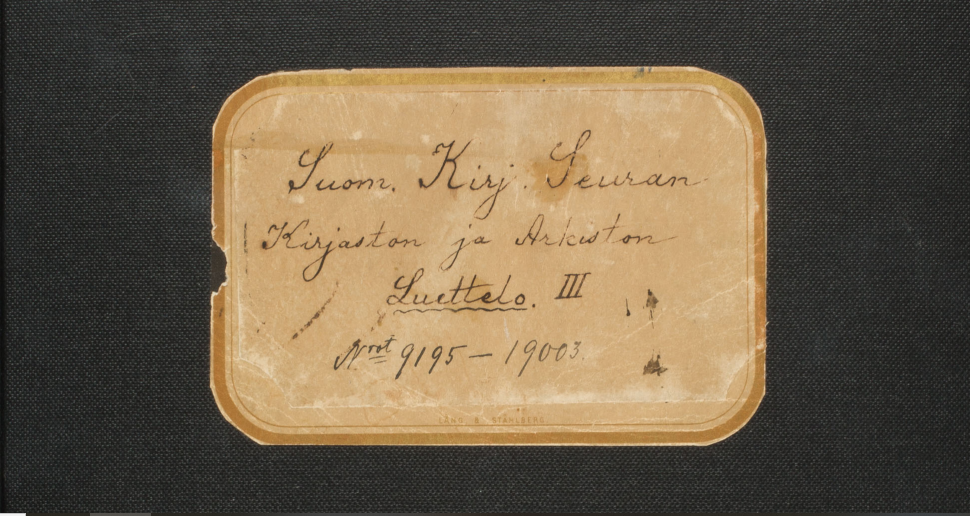 Suom. Kirj. Seuran
Kirjaston ja Arkiston
Luettelo. III
Nrot 9195 — 19003.
LÅNG & STÅHLBERG